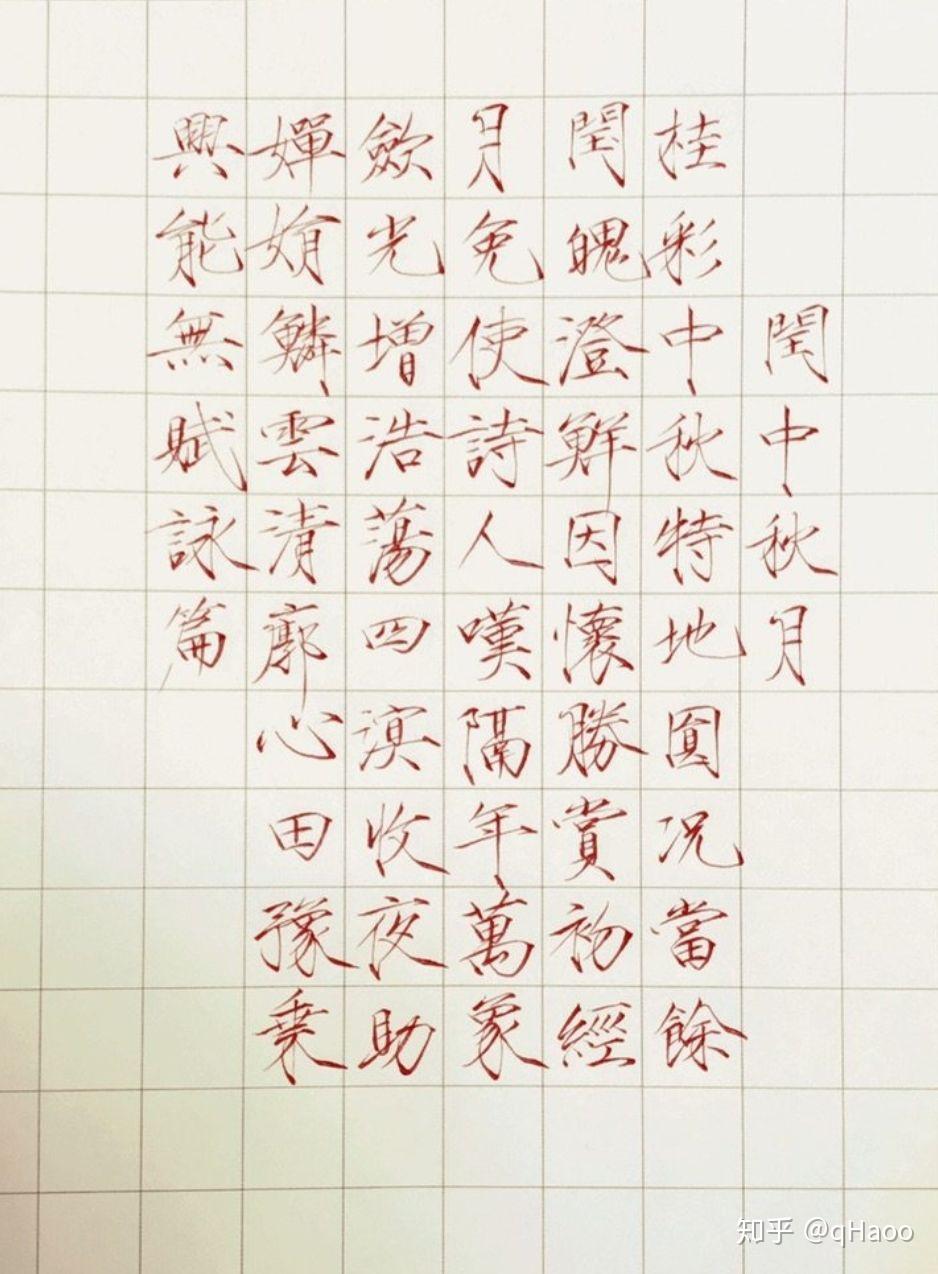 閏中秋月
桂彩中秋特地圓况當餘
閏魄澄鮮因懷勝賞初經
月免使詩人嘆隔年萬象
斂光增浩蕩四溟收夜助
嬋娟鱗雲清廓心田豫乗
興能無賦詠篇
知乎 @qHaoo